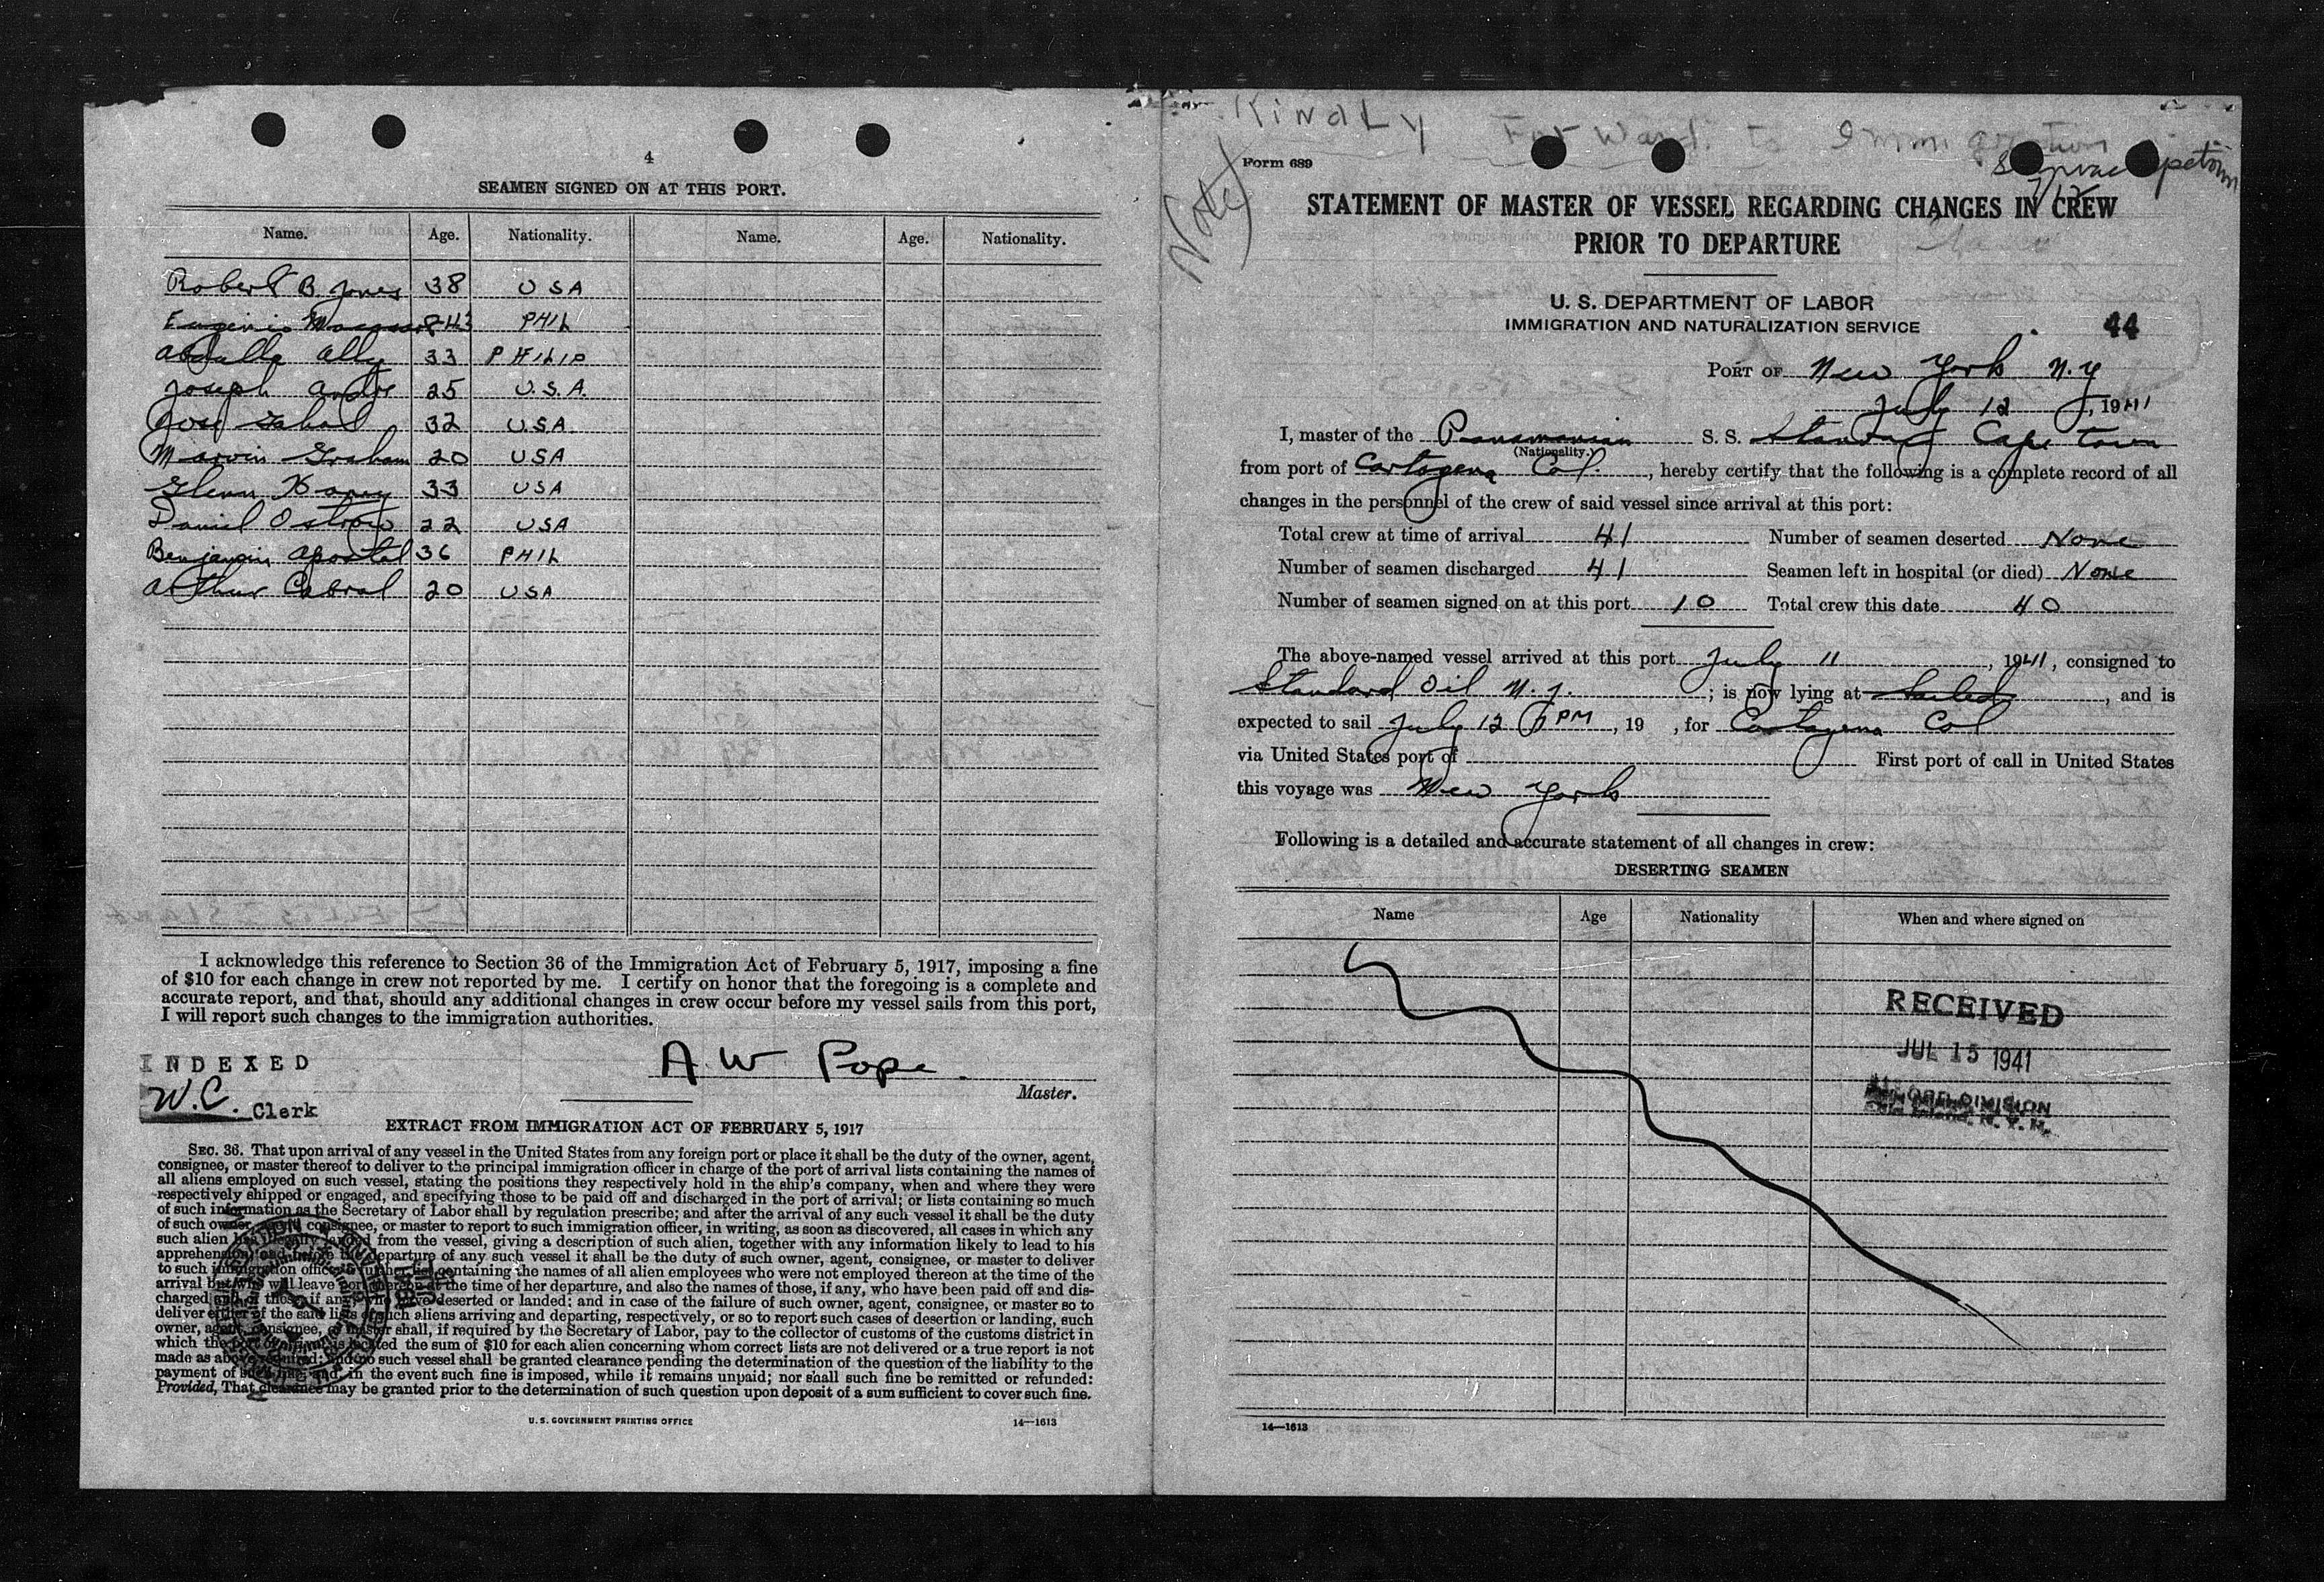 4
SEAMEN SIGNED ON AT THIS PORT.
Name. Age. Nationality. Name. Age. Nationality.
Robert B. Jones 38 USA
Eugenio 43 PHIL
Abdulla Ally 33 PHILIP
Joseph Andre 25 U.S.A.
Jose 32 U.S.A.
Marvin Graham 20 USA
Glenn 33 USA
Daniel Ostrow 22 USA
Benjamin Apostal 36 PHIL
Arthur Cabral 20 USA
I acknowledge this reference to Section 36 of the Immigration Act of February 5, 1917, imposing a fine
of $10 for each change in crew not reported by me. I certify on honor that the foregoing is a complete and
accurate report, and that, should any additional changes in crew occur before my vessel sails from this port,
I will report such changes to the immigration authorities.
INDEXED
W.C. Clerk
A. W Pope
Master.
EXTRACT FROM IMMIGRATION ACT OF FEBRUARY 5, 1917
SEC. 36. That upon arrival of any vessel in the United States from any foreign port or place it shall be the duty of the owner, agent,
consignee, or master thereof to deliver to the principal immigration officer in charge of the port of arrival lists containing the names of
all aliens employed on such vessel, stating the positions they respectively hold in the ship's company, when and where they were
respectively shipped or engaged, and specifying those to be paid off and discharged in the port of arrival; or lists containing so much
of such information as the Secretary of Labor shall by regulation prescribe; and after the arrival of any such vessel it shall be the duty
of such owner, agent, consignee, or master to report to such immigration officer, in writing, as soon as discovered, all cases in which any
such alien has illegally landed from the vessel, giving a description of such alien, together with any information likely to lead to his
apprehension; and before the departure of any such vessel it shall be the duty of such owner, agent, consignee, or master to deliver
to such immigration officer a further list containing the names of all alien employees who were not employed thereon at the time of the
arrival but who will leave port thereon at the time of her departure, and also the names of those, if any, who have been paid off and dis-
charged and of those, if any, who have deserted or landed; and in case of the failure of such owner, agent, consignee, or master so to
deliver either of the said lists of such aliens arriving and departing, respectively, or so to report such cases of desertion or landing, such
owner, agent, consignee, or master shall, if required by the Secretary of Labor, pay to the collector of customs of the customs district in
which the port of arrival is located the sum of $10 for each alien concerning whom correct lists are not delivered or a true report is not
made as above required; and no such vessel shall be granted clearance pending the determination of the question of the liability to the
payment of such fine, and, in the event such fine is imposed, while it remains unpaid; nor shall such fine be remitted or refunded:
Provided, That clearance may be granted prior to the determination of such question upon deposit of a sum sufficient to cover such fine.
U. S. GOVERNMENT PRINTING OFFICE 14—1613
Note
Kindly Forward to Immigration
Form 689
STATEMENT OF MASTER OF VESSEL REGARDING CHANGES IN CREW
PRIOR TO DEPARTURE
U. S. DEPARTMENT OF LABOR
IMMIGRATION AND NATURALIZATION SERVICE
44
PORT OF New York N.Y
July 12, 1941
I, master of the Panamanian S. S. Standard Cape Town
(Nationality.)
from port of Cartagena Col., hereby certify that the following is a complete record of all
changes in the personnel of the crew of said vessel since arrival at this port:
Total crew at time of arrival 41 Number of seamen deserted None
Number of seamen discharged 41 Seamen left in hospital (or died) None
Number of seamen signed on at this port 10 Total crew this date 40
The above-named vessel arrived at this port July 11, 1941, consigned to
Standard Oil N.J.; is now lying at Sailed, and is
expected to sail July 12 PM, 19 , for Cartagena Col
via United States port of First port of call in United States
this voyage was New York
Following is a detailed and accurate statement of all changes in crew:
DESERTING SEAMEN
Name Age Nationality When and where signed on
RECEIVED
JUL 15 1941
RECORD DIVISION
Ellis Island, N. Y. H.
14—1613